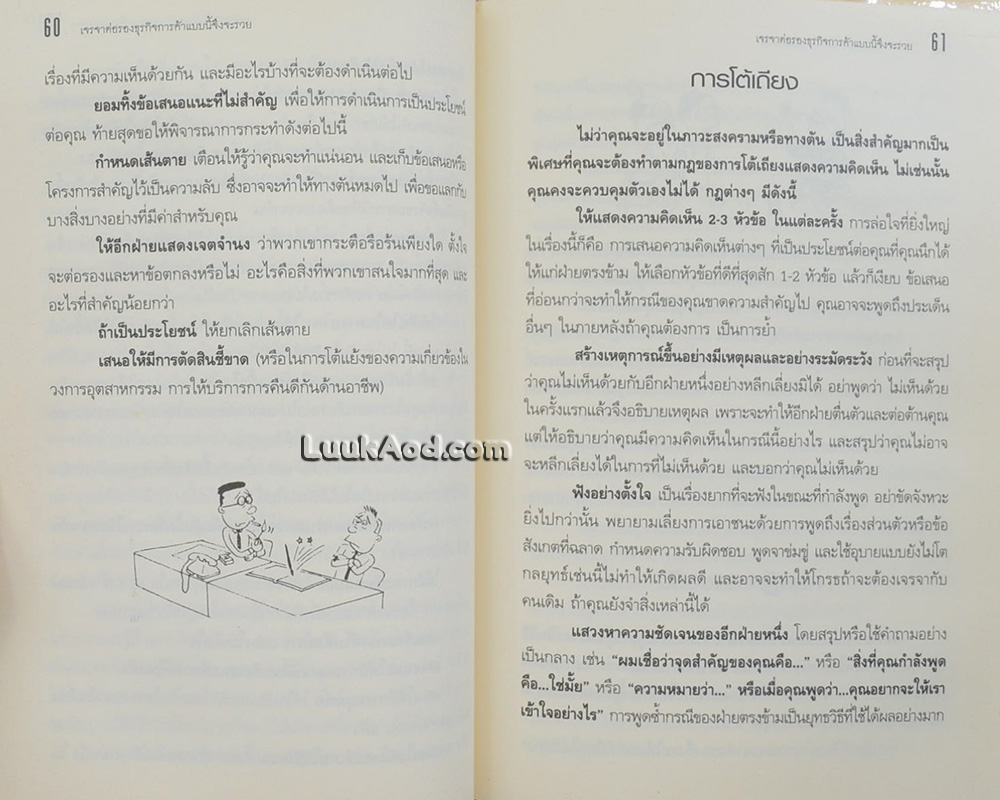 60 เจรจาต่อรองธุรกิจการค้าแบบนี้จึงจะรวย
เรื่องที่มีความเห็นด้วยกัน และมีอะไรบ้างที่จะต้องดำเนินต่อไป
ยอมทิ้งข้อเสนอแนะที่ไม่สำคัญ เพื่อให้การดำเนินการเป็นประโยชน์
ต่อคุณ ท้ายสุดขอให้พิจารณาการกระทำดังต่อไปนี้
กำหนดเส้นตาย เตือนให้รู้ว่าคุณจะทำแน่นอน และเก็บข้อเสนอหรือ
โครงการสำคัญไว้เป็นความลับ ซึ่งอาจจะทำให้ทางตันหมดไป เพื่อขอแลกกับ
บางสิ่งบางอย่างที่มีค่าสำหรับคุณ
ให้อีกฝ่ายแสดงเจตจำนง ว่าพวกเขากระตือรือร้นเพียงใด ตั้งใจ
จะต่อรองและหาข้อตกลงหรือไม่ อะไรคือสิ่งที่พวกเขาสนใจมากที่สุด และ
อะไรที่สำคัญน้อยกว่า
ถ้าเป็นประโยชน์ ให้ยกเลิกเส้นตาย
เสนอให้มีการตัดสินชี้ขาด (หรือในการโต้แย้งของความเกี่ยวข้องใน
วงการอุตสาหกรรม การให้บริการการคืนดีกันด้านอาชีพ)
LuukAod.com
เจรจาต่อรองธุรกิจการค้าแบบนี้จึงจะรวย 61
การโต้เถียง
ไม่ว่าคุณจะอยู่ในภาวะสงครามหรือทางตัน เป็นสิ่งสำคัญมากเป็น
พิเศษที่คุณจะต้องทำตามกฎของการโต้เถียงแสดงความคิดเห็น ไม่เช่นนั้น
คุณคงจะควบคุมตัวเองไม่ได้ กฎต่างๆ มีดังนี้
ให้แสดงความคิดเห็น 2-3 หัวข้อ ในแต่ละครั้ง การล่อใจที่ยิ่งใหญ่
ในเรื่องนี้ก็คือ การเสนอความคิดเห็นต่างๆ ที่เป็นประโยชน์ต่อคุณที่คุณนึกได้
ให้แก่ฝ่ายตรงข้าม ให้เลือกหัวข้อที่ดีที่สุดสัก 1-2 หัวข้อ แล้วก็เงียบ ข้อเสนอ
ที่อ่อนกว่าจะทำให้กรณีของคุณขาดความสำคัญไป คุณอาจจะพูดถึงประเด็น
อื่นๆ ในภายหลังถ้าคุณต้องการ เป็นการย้ำ
สร้างเหตุการณ์ขึ้นอย่างมีเหตุผลและอย่างระมัดระวัง ก่อนที่จะสรุป
ว่าคุณไม่เห็นด้วยกับอีกฝ่ายหนึ่งอย่างหลีกเลี่ยงมิได้ อย่าพูดว่า ไม่เห็นด้วย
ในครั้งแรกแล้วจึงอธิบายเหตุผล เพราะจะทำให้อีกฝ่ายตื่นตัวและต่อต้านคุณ
แต่ให้อธิบายว่าคุณมีความคิดเห็นในกรณีนี้อย่างไร และสรุปว่าคุณไม่อาจ
จะหลีกเลี่ยงได้ในการที่ไม่เห็นด้วย และบอกว่าคุณไม่เห็นด้วย
ฟังอย่างตั้งใจ เป็นเรื่องยากที่จะฟังในขณะที่กำลังพูด อย่าขัดจังหวะ
ยิ่งไปกว่านั้น พยายามเลี่ยงการเอาชนะด้วยการพูดถึงเรื่องส่วนตัวหรือข้อ
สังเกตที่ฉลาด กำหนดความรับผิดชอบ พูดจาข่มขู่ และใช้อุบายแบบยังไม่โต
กลยุทธ์เช่นนี้ไม่ทำให้เกิดผลดี และอาจจะทำให้โกรธถ้าจะต้องเจรจากับ
คนเดิม ถ้าคุณยังจำสิ่งเหล่านี้ได้
แสวงหาความชัดเจนของอีกฝ่ายหนึ่ง โดยสรุปหรือใช้คำถามอย่าง
เป็นกลาง เช่น “ผมเชื่อว่าจุดสำคัญของคุณคือ...” หรือ “สิ่งที่คุณกำลังพูด
คือ...ใช่มั้ย” หรือ “ความหมายว่า...” หรือเมื่อคุณพูดว่า...คุณอยากจะให้เรา
เข้าใจอย่างไร” การพูดซ้ำกรณีของฝ่ายตรงข้ามเป็นยุทธวิธีที่ใช้ได้ผลอย่างมาก